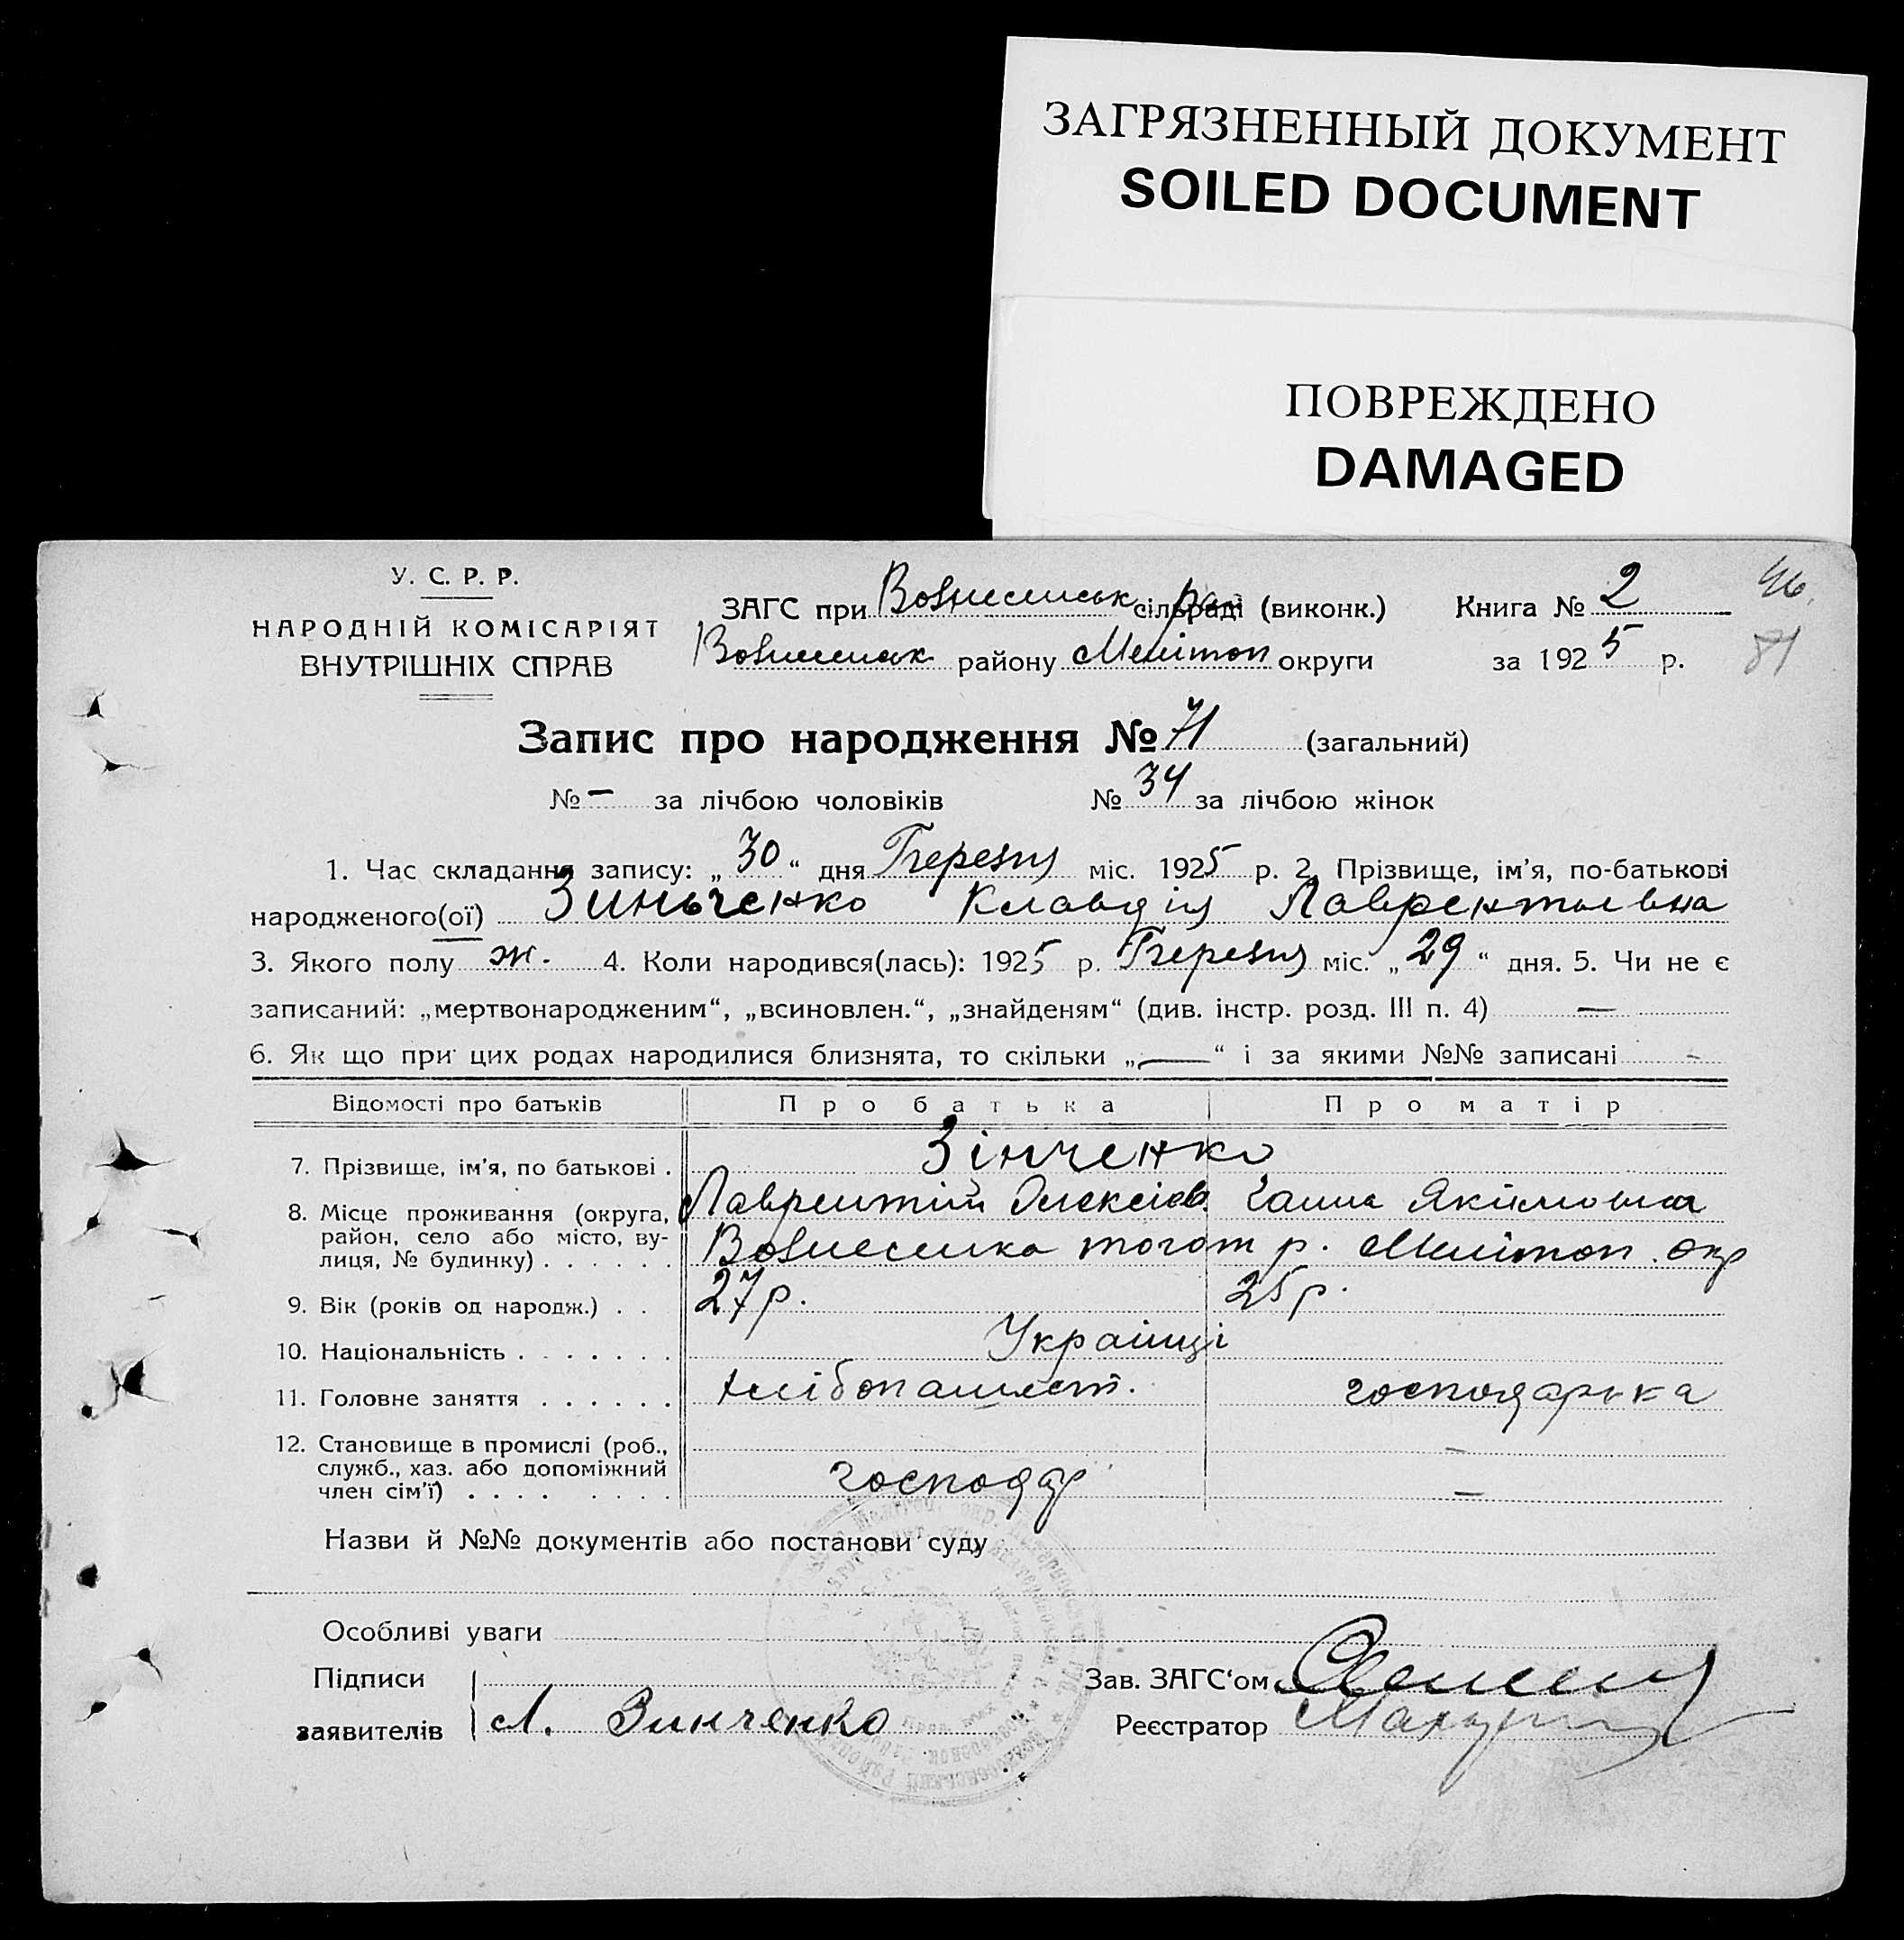 ЗАГРЯЗНЕННЫЙ ДОКУМЕНТ
SOILED DOCUMENT
ПОВРЕЖДЕНО
DAMAGED
У. С. Р. Р.
НАРОДНІЙ КОМІСАРІЯТ
ВНУТРІШНІХ СПРАВ
ЗАГС при Вознесенськ сільраді рай (виконк.) Книга № 2 46
Вознесенськ району Мелітоп округи за 1925 р. 81
Запис про народження № 71 (загальний)
№ — за лічбою чоловіків № 34 за лічбою жінок
1. Час складання запису: „30“ дня Березня міс. 1925 р. 2. Прізвище, ім’я, по-батькові
народженого(ої) Зиньченко Клавдія Лаврентьевна
3. Якого полу ж. 4. Коли народився(лась): 1925 р. Березня міс. „29“ дня. 5. Чи не є
записаний: „мертвонародженим“, „всиновлен.“, „знайденям“ (див. інстр. розд. III п. 4) —
6. Як що при цих родах народилися близнята, то скільки „—“ і за якими №№ записані -
Відомості про батьків Про батька Про матір
7. Прізвище, ім’я, по батькові . Зінченко
Лаврентій Олексієв. Ганна Якимовна
8. Місце проживання (округа,
район, село або місто, ву-
лиця, № будинку) . . . . . . Вознесенка того ж р. Мелітоп. окр
9. Вік (років од народж.) . . 27 р. 25 р.
10. Національність . . . . . . . Українці
11. Головне заняття . . . . . . хлібопашест. господарька
12. Становище в промислі (роб., —
служб., хаз. або допоміжний
член сім’ї) . . . . . . . . господар —
Назви й №№ документів або постанови суду
Особливі уваги
Підписи Зав. ЗАГС‘ом
заявителів Л. Зинченко Реєстратор